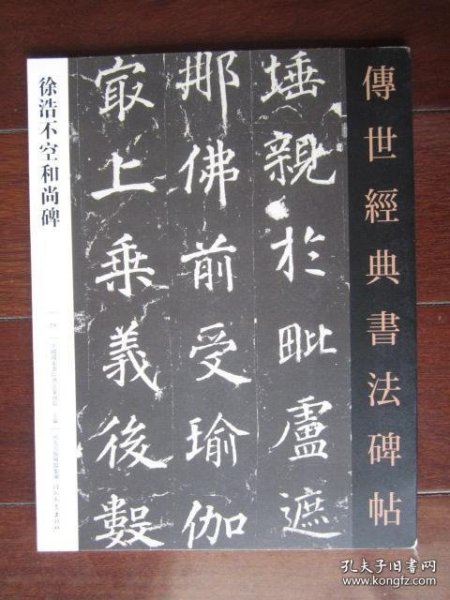 傳世經典書法碑帖
埵親於毗盧遮
那佛前受瑜伽
㝡上乗義後數
徐浩不空和尚碑
孔夫子旧书网
www.kongfz.com